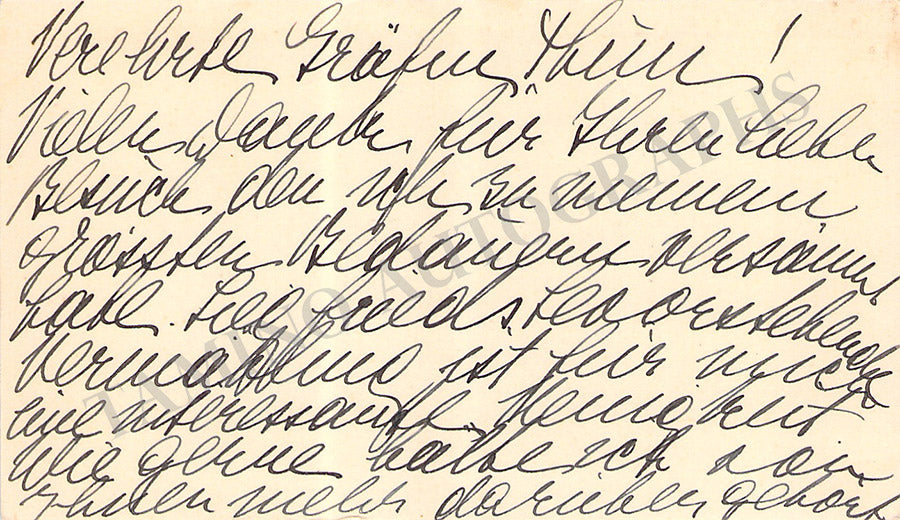 Verehrte Gräfin Thun!
Vielen Dank für Ihren lieben
Besuch den ich zu meinem
grössten Bedauern versäumt
habe. Siegfrieds bevorstehende
Vermählung ist für mich
eine interessante Neuigkeit
Wie gerne hätte ich von
Ihnen mehr darüber gehört.
TAMINO AUTOGRAPHS